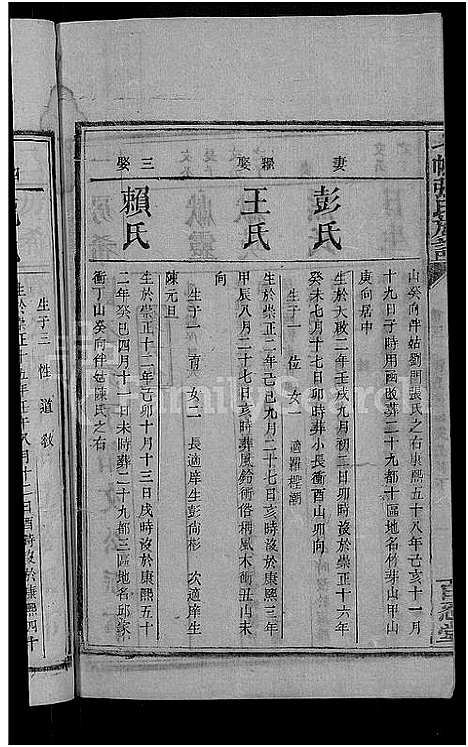 山癸向伴姑劉閏張氏之右康熙五十八年乙亥十一月
十九日子時用函改葬二十九都十區地名竹芽山甲山
庚向居中
妻 彭氏
生於天啟二年壬戌九月初二日卯時歿於崇正十六年
癸未七月十七日卯時葬小長衝酉山卯向
生子一 位 女一 適羅楻潮
繼娶 王氏
生於崇正二年己巳九月二十七日亥時沒於康熙三年
甲辰八月二十七日亥時葬風鈴衝俗稱風木衝丑山未
向
生子一 育 女二 長適庠生彭尚彬 次適庠生
陳元旦
三娶 賴氏
生於崇正十二年己卯十月十三日戌時沒於康熙五十
二年癸巳四月十一日未時葬二十九都三區地名邱家
衝丁山癸向伴姑陳氏之右
四
生子三 性 道 敦
FamilySearch